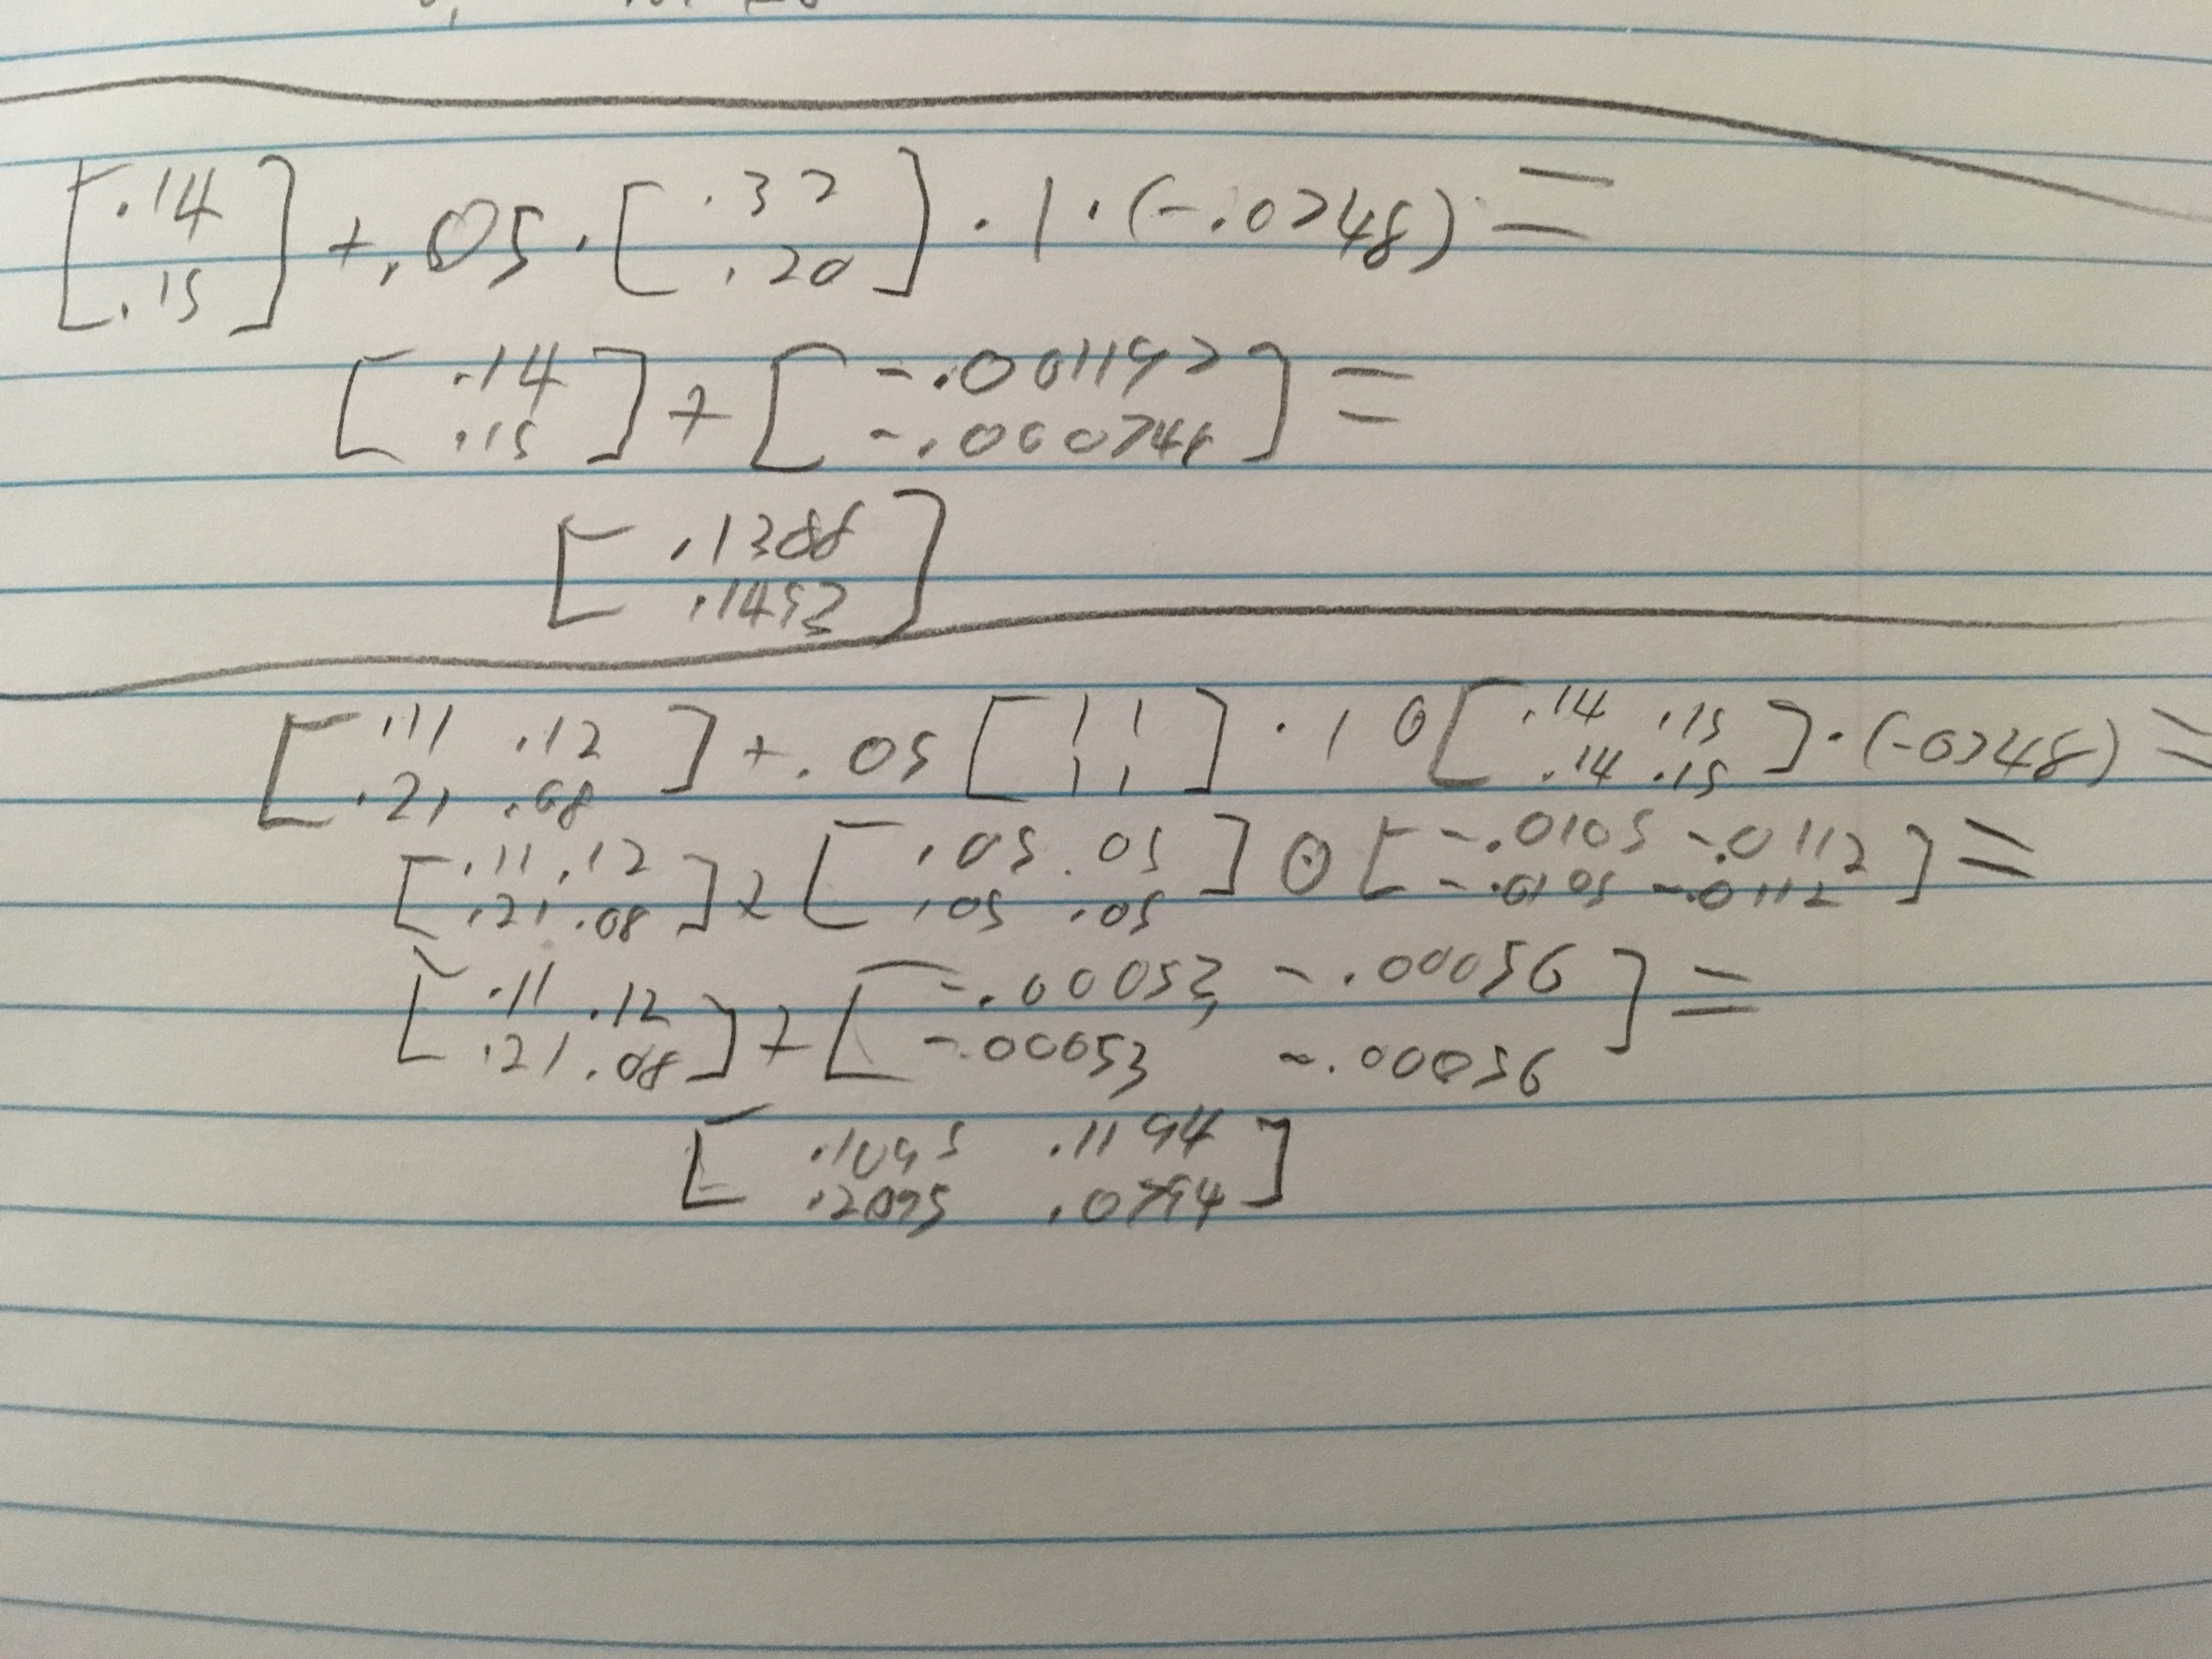 [.14 .15] + .05 · [.32 .20] · 1 · (-.0748) =
[.14 .15] + [-.001197 -.000748] =
[.1388 .1493]
[.11 .12 .21 .08] + .05 [1 1 1 1] · 1 ⊙ [.14 .15 .14 .15] · (-0748) =
[.11 .12 .21 .08] + [.05 .05 .05 .05] ⊙ [-.0105 -.0112 -.0105 -.0112] =
[.11 .12 .21 .08] + [-.00053 -.00056 -.00053 -.00056] =
[.1095 .1194 .2095 .0794]